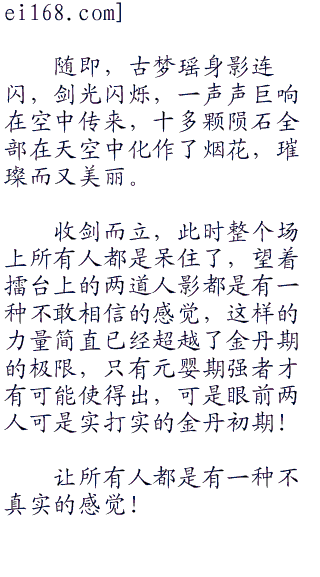 ei168.com]
随即，古梦瑶身影连
闪，剑光闪烁，一声声巨响
在空中传来，十多颗陨石全
部在天空中化作了烟花，璀
璨而又美丽。
收剑而立，此时整个场
上所有人都是呆住了，望着
擂台上的两道人影都是有一
种不敢相信的感觉，这样的
力量简直已经超越了金丹期
的极限，只有元婴期强者才
有可能使得出，可是眼前两
人可是实打实的金丹初期！
让所有人都是有一种不
真实的感觉！